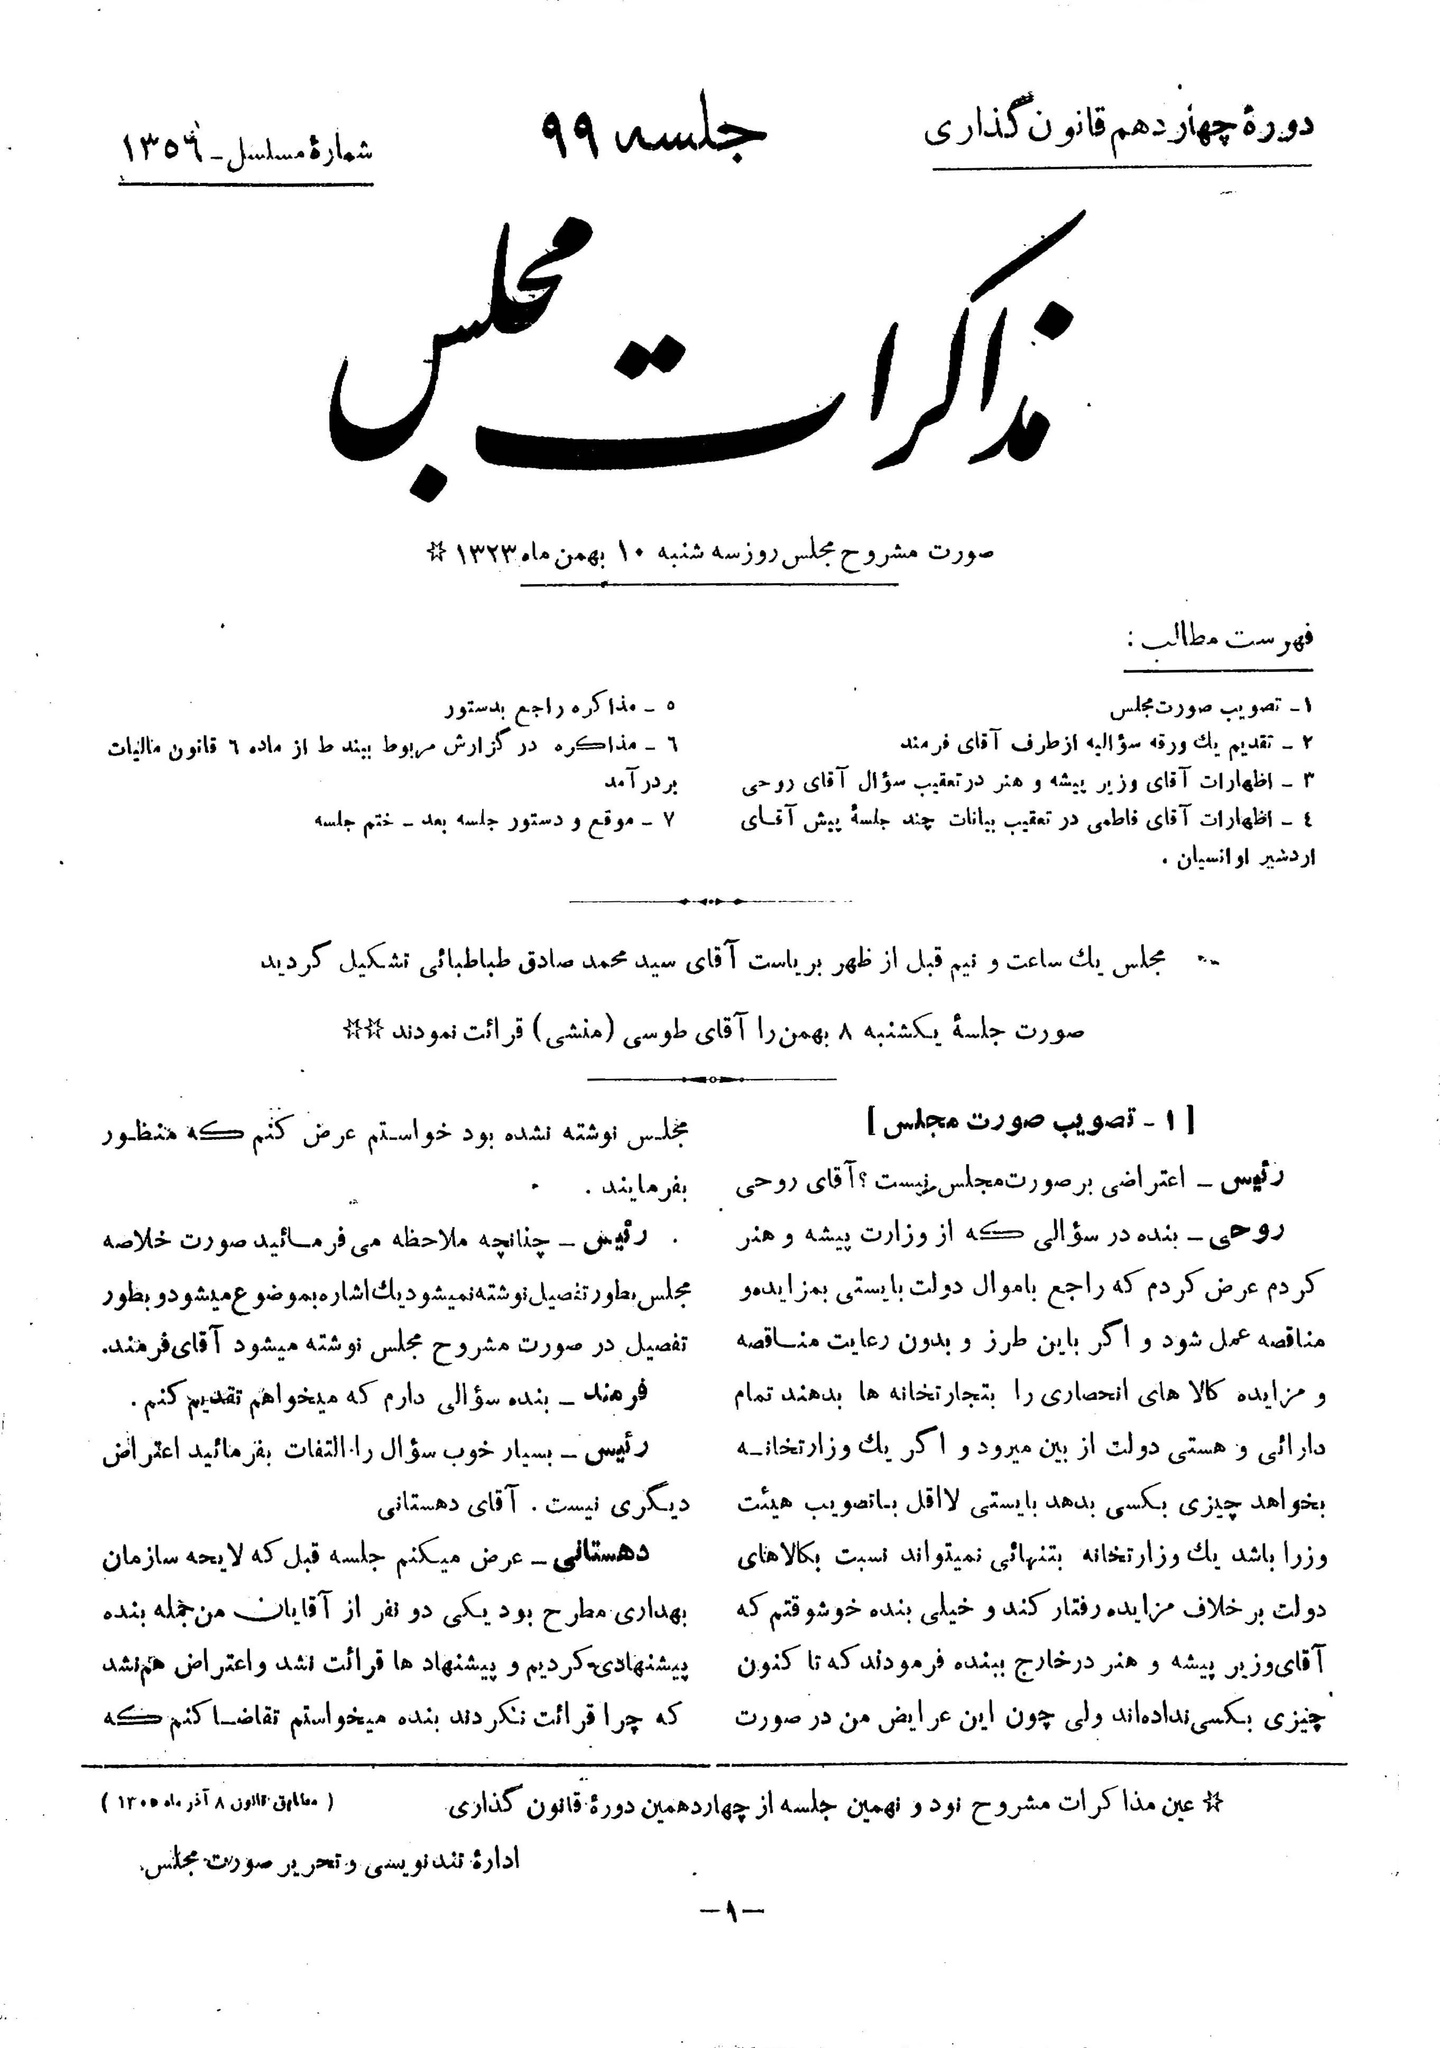 دورهٔ چهاردهم قانون گذاری
جلسه ۹۹
شمارهٔ مسلسل ـ ۱۳۵۶
مذاکرات مجلس
صورت مشروح مجلس روز سه شنبه ۱۰ بهمن ماه ۱۳۲۳ ☆
فهرست مطالب :
۱ ـ تصویب صورت مجلس
۲ ـ تقدیم یك ورقه سؤالیه از طرف آقای فرمند
۳ ـ اظهارات آقای وزیر پیشه و هنر در تعقیب سؤال آقای روحی
٤ ـ اظهارات آقای فاطمی در تعقیب بیانات چند جلسهٔ پیش آقـای
اردشیر اوانسیان .
٥ ـ مذاکره راجع بدستور
٦ ـ مذاکره در گزارش مربوط ببند ط از ماده ٦ قانون مالیات
بردرآمد
۷ ـ موقع و دستور جلسه بعد ـ ختم جلسه
مجلس یك ساعت و نیم قبل از ظهر بریاست آقای سید محمد صادق طباطبائی تشکیل گردید
صورت جلسهٔ یکشنبه ۸ بهمن را آقای طوسی (منشی) قرائت نمودند ☆☆
[ ۱ ـ تصویب صورت مجلس ]
رئیس ـ اعتراضی بر صورت مجلس نیست ؟ آقای روحی
روحی ـ بنده در سؤالی که از وزارت پیشه و هنر
کردم عرض کردم که راجع باموال دولت بایستی بمزایده و
مناقصه عمل شود و اگر باین طرز و بدون رعایت منـاقصه
و مزایده کالا های انحصاری را بتجارتخانه ها بدهند تمام
دارائی و هستی دولت از بین میرود و اگر یك وزارتخانـه
بخواهد چیزی بکسی بدهد بایستی لااقل بـاتصویب هیئت
وزرا باشد یك وزارتخانه بتنهائی نمیتواند نسبت بکالاهای
دولت برخلاف مزایده رفتار کند و خیلی بنده خوشوقتم که
آقای وزیر پیشه و هنر در خارج ببنده فرمودند که تا کنون
چیزی بکسی نداده‌اند ولی چون این عرایض من در صورت
مجلـس نوشته نشده بود خواستم عرض کنم کـه منظـور
بفرمایند .
رئیس ـ چنانچه ملاحظه می فرمـائید صورت خلاصه
مجلس بطور تفصیل نوشته نمیشود یك اشاره بموضوع میشود و بطور
تفصیل در صورت مشروح مجلس نوشته میشود آقای فرمند.
فرمند ـ بنده سؤالی دارم که میخواهم تقدیم کنم .
رئیس ـ بسیار خوب سؤال را التفات بفرمائید اعتراض
دیگری نیست . آقای دهستانی
دهستانی ـ عرض میکنم جلسه قبل که لایحه سازمان
بهداری مطرح بود یکی دو نفر از آقایان من جمله بنده
پیشنهادی کردیم و پیشنهاد ها قرائت نشد و اعتراض هم نشد
که چرا قرائت نکردند بنده میخواستم تقاضـا کنم کـه
☆ عین مذاکرات مشروح نود و نهمین جلسه از چهاردهمین دورهٔ قانون گذاری
( مطابق قانون ۸ آذر ماه ۱۳۰۵ )
ادارهٔ تندنویسی و تحریر صورت مجلس
ـ ۱ ـ